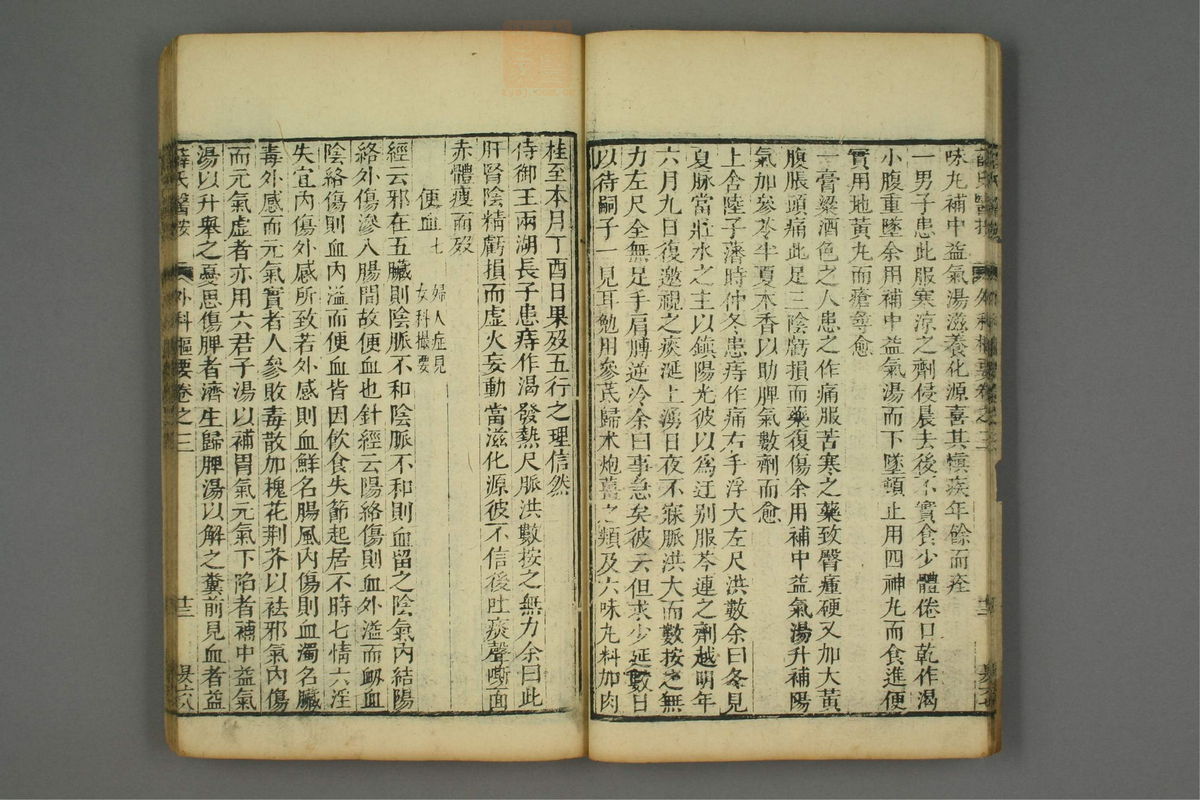 味丸補中益氣湯滋養化源喜其慎疾年餘而痊
一男子患此服寒涼之劑侵晨去後不實食少體倦口乾作渴
小腹重墜余用補中益氣湯而下墜頓止用四神丸而食進便
實用地黃丸而瘡尋愈
一膏粱酒色之人患之作痛服苦寒之藥致臀腫硬又加大黃
腹脹頭痛此足三陰虧損而藥復傷余用補中益氣湯升補陽
氣加參苓半夏木香以助脾氣數劑而愈
上舍陸子藩時仲冬患痔作痛右手浮大左尺洪數余曰冬見
夏脉當壯水之主以鎮陽光彼以為迂别服芩連之劑越明年
六月九日復邀視之痰涎上湧日夜不寐脈洪大而數按之無
力左尺全無足手肩膊逆冷余曰事急矣彼云但求少延數日
以待嗣子一見耳勉用參芪歸术炮薑之類及六味丸料加肉
桂至本月丁酉日果歿五行之理信然
侍御王兩湖長子患痔作渴發熱尺脈洪數按之無力余曰此
肝腎陰精虧損而虛火妄動當滋化源彼不信後吐痰聲嘶面
赤體瘦而歿
便血七 婦人症見女科撮要
經云邪在五臟則陰脈不和陰脈不和則血留之陰氣內結陽
絡外傷滲入腸間故便血也針經云陽絡傷則血外溢而衄血
陰絡傷則血內溢而便血皆因飲食失節起居不時七情六淫
失宜內傷外感所致若外感則血鮮名腸風內傷則血濁名臟
毒外感而元氣實者人參敗毒散加槐花荆芥以祛邪氣內傷
而元氣虛者亦用六君子湯以補胃氣元氣下陷者補中益氣
湯以升舉之憂思傷脾者濟生歸脾湯以解之糞前見血者益
薛氏醫按 外科樞要卷之三 廿三